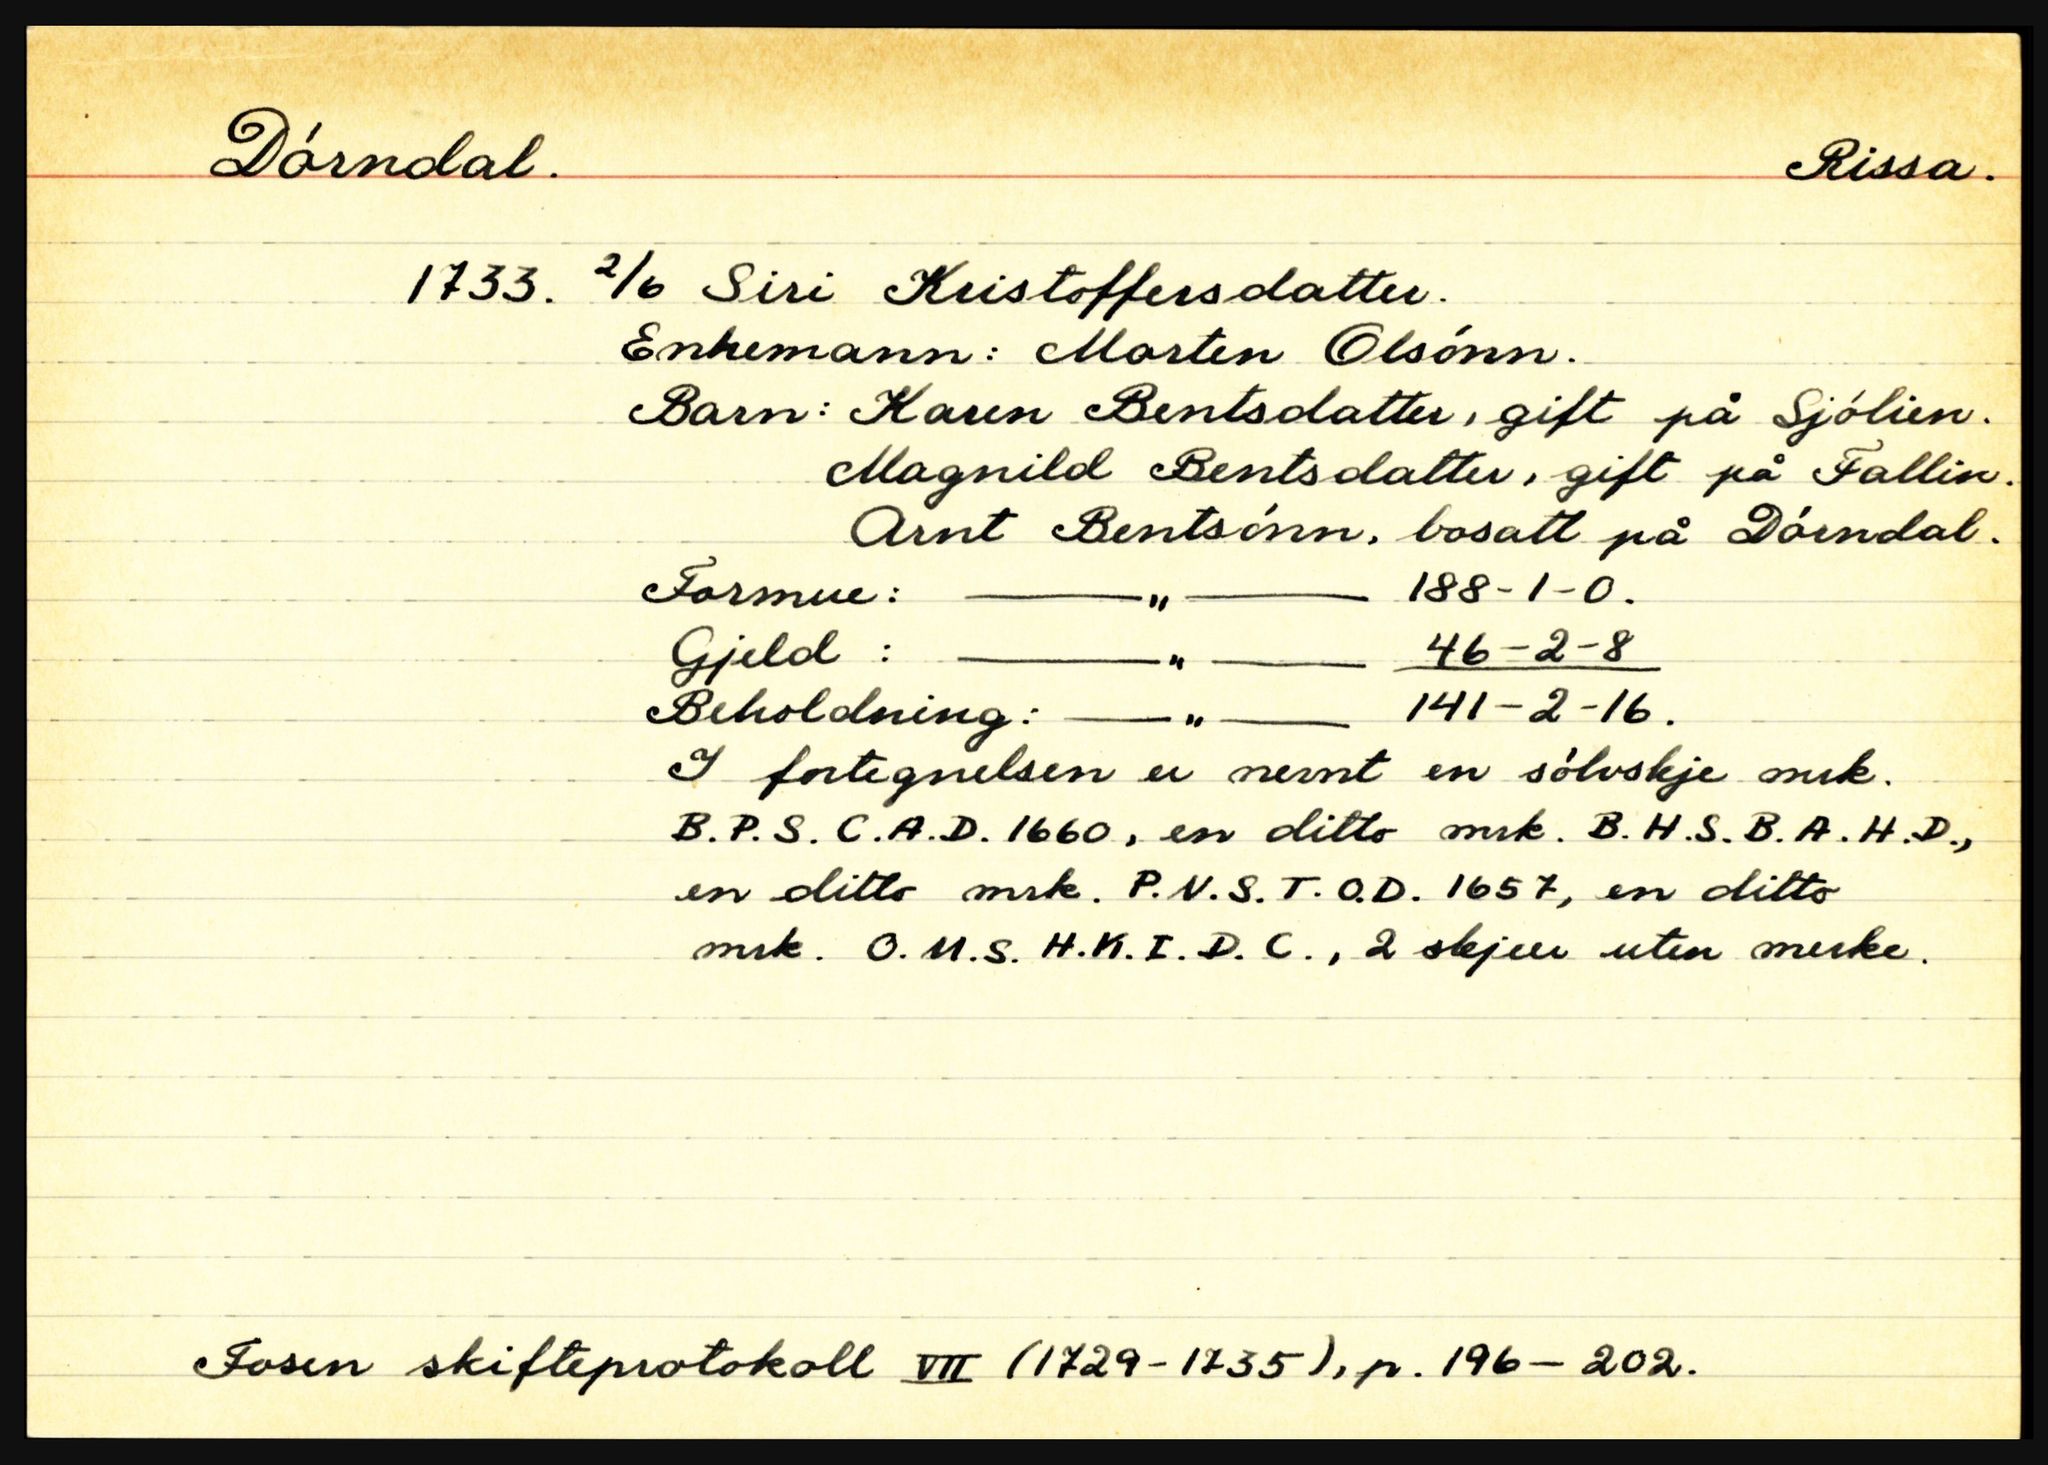 Dórndal. Rissa.
1733. 2/6 Siri Kristoffersdatter.
Enkemann: Morten Olsónn.
Barn: Karen Bentsdatter, gift på Sjólien.
Magnild Bentsdatter, gift på Fallin.
Arnt Bentsónn, bosatt på Dórndal.
Formue: — „ — 188-1-0.
Gjeld : — „ — 46-2-8
Beholdning: — „ — 141-2-16.
I fortegnelsen er nevnt en sólvskje mrk.
B.P.S.C.A.D. 1660, en ditto mrk. B.H.S.B.A.H.D.,
en ditto mrk. P.N.S.T.O.D. 1657, en ditto
mrk. O.M.S.H.K.I.D.C., 2 skjeer uten merke.
Fosen skifteprotokoll VII (1729-1735), p. 196-202.